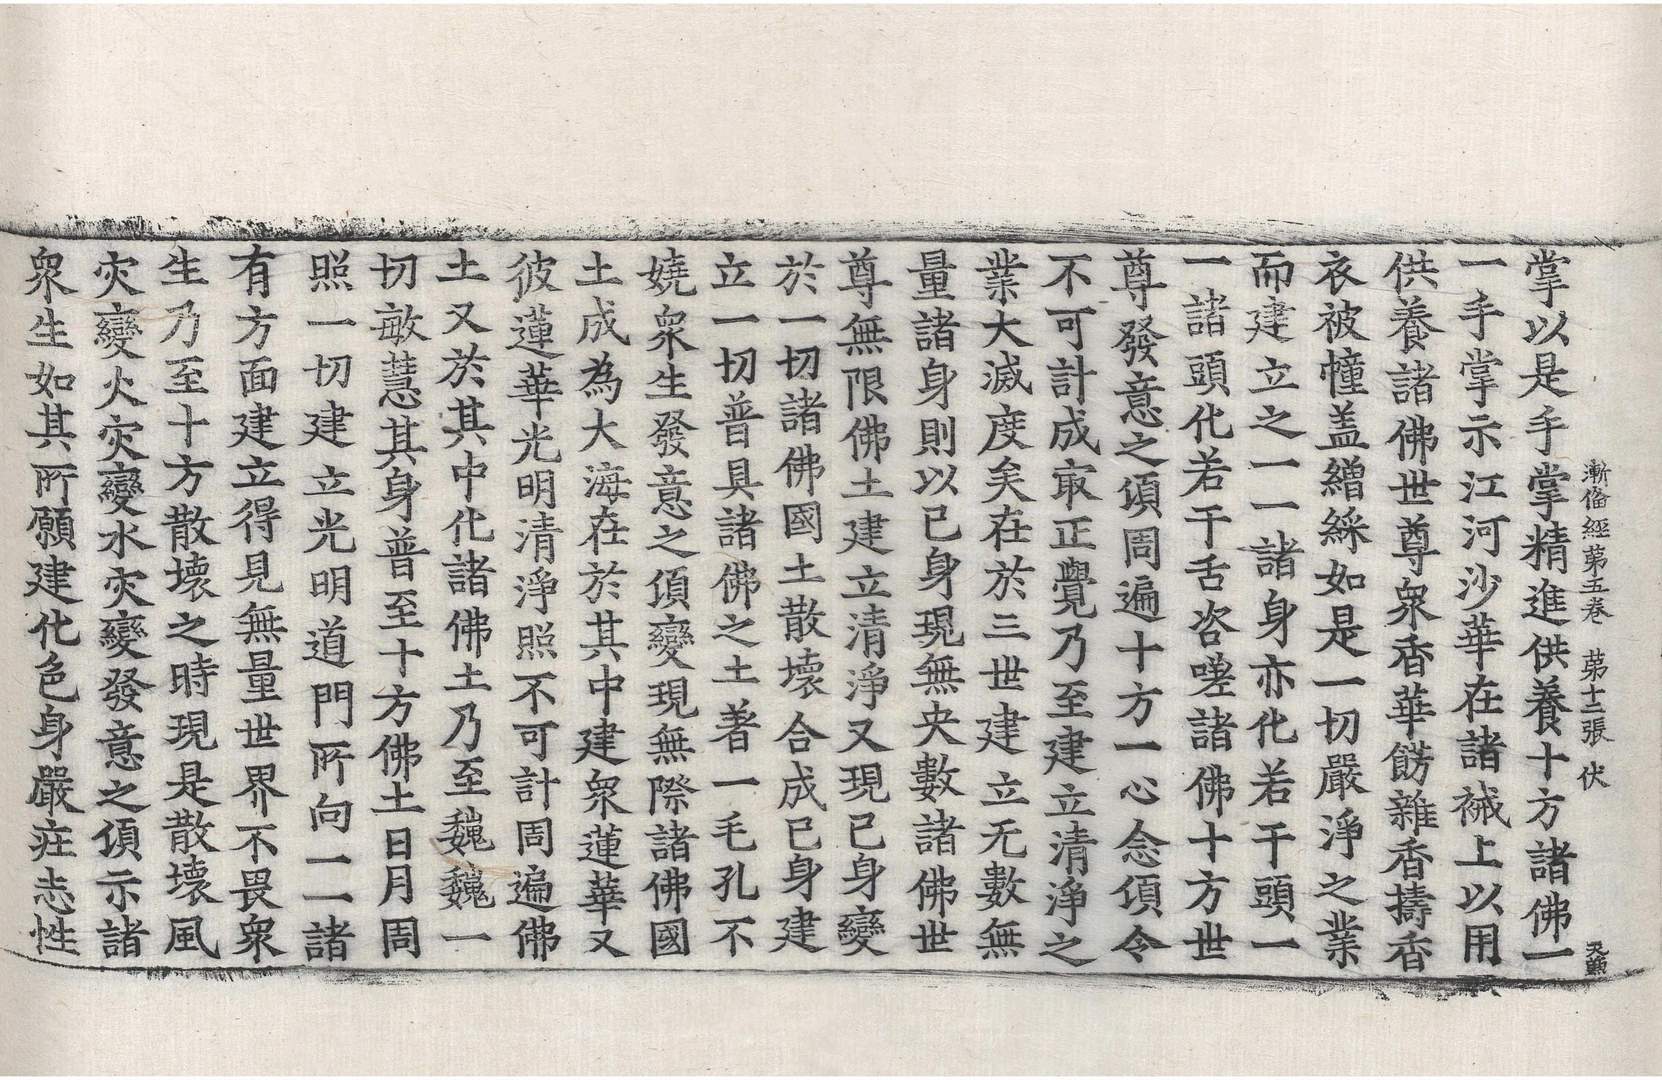 漸俻經第五卷 第十二張 伏
掌以是手掌精進供養十方諸佛一
一手掌示江河沙華在諸裓上以用
供養諸佛世尊衆香華餝雜香擣香
衣被幢盖繒綵如是一切嚴淨之業
而建立之一一諸身亦化若干頭一
一諸頭化若干舌咨嗟諸佛十方世
尊發意之頃周遍十方一心念頃令
不可計成㝡正覺乃至建立清淨之
業大滅度矣在於三世建立无數無
量諸身則以已身現無央數諸佛世
尊無限佛土建立清淨又現已身變
於一切諸佛國土散壞合成已身建
立一切普具諸佛之土著一毛孔不
嬈衆生發意之頃變現無際諸佛國
土成為大海在於其中建衆蓮華又
彼蓮華光明清淨照不可計周遍佛
土又於其中化諸佛土乃至巍巍一
切敏慧其身普至十方佛土日月周
照一切建立光明道門所向一一諸
有方面建立得見無量世界不畏衆
生乃至十方散壞之時現是散壞風
灾變火灾變水灾變發意之頃示諸
衆生如其所願建化色身嚴疘志性